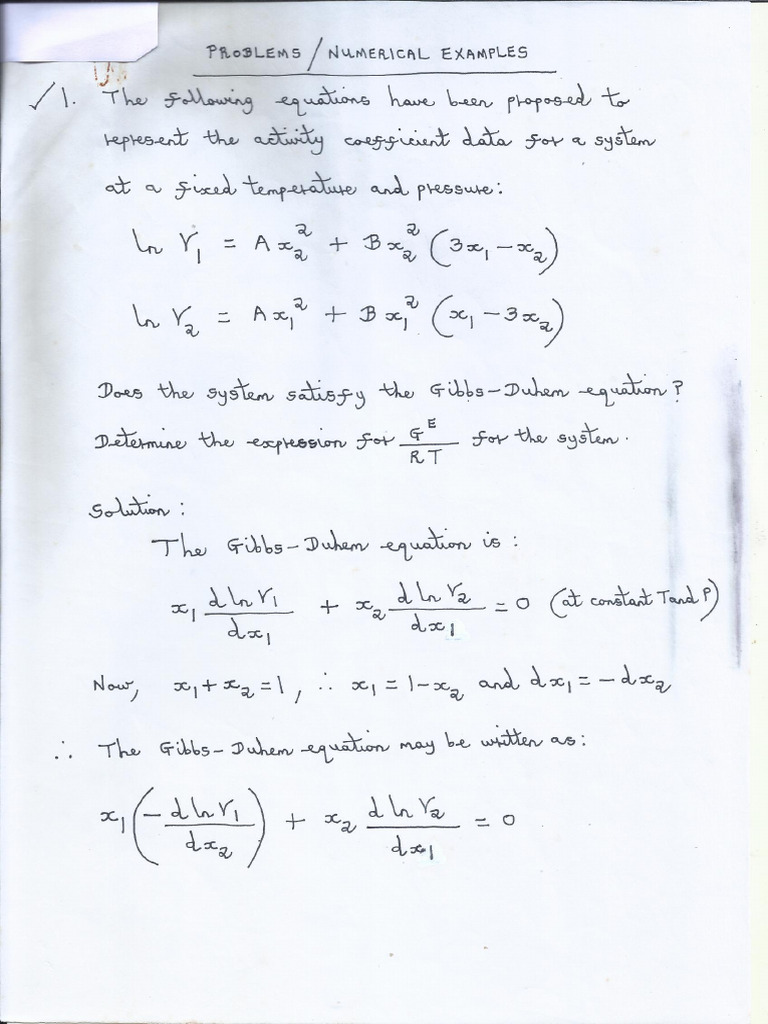 PROBLEMS / NUMERICAL EXAMPLES
✓ 1. The following equations have been proposed to
represent the activity coefficient data for a system
at a fixed temperature and pressure:
ln γ₁ = A x₂² + B x₂² (3x₁ − x₂)
ln γ₂ = A x₁² + B x₁² (x₁ − 3x₂)
Does the system satisfy the Gibbs-Duhem equation?
Determine the expression for G^E / RT for the system.
Solution:
The Gibbs-Duhem equation is:
x₁ d ln γ₁ / dx₁ + x₂ d ln γ₂ / dx₁ = 0 (at constant T and P)
Now, x₁ + x₂ = 1, ∴ x₁ = 1 − x₂ and dx₁ = − dx₂
∴ The Gibbs-Duhem equation may be written as:
x₁ (− d ln γ₁ / dx₂) + x₂ d ln γ₂ / dx₁ = 0